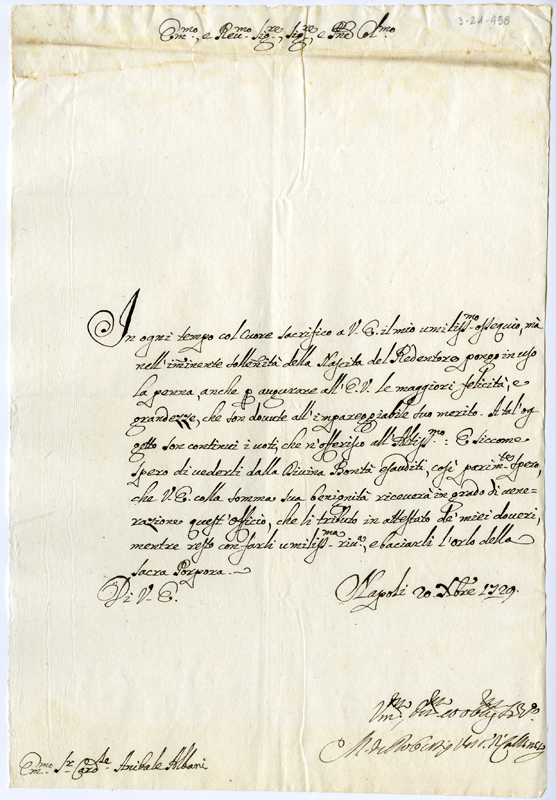 3-21-458
Em.mo, e Reu.mo Sig.re, Sig.re, e Pne Col.mo
In ogni tempo col Cuore sacrifico a V. E. il mio umiliss.mo ossequio, mà
nell'im̃inente sollennità della Nascita del Redentore pongo in uso
la penna anche p augurare all'E.V. le maggiori felicità, e
grandezze, che son douute all'impareggiabile suo merito. A tal'og
getto son continui i uoti, che n'offerisco all'Altiss.mo: E siccome
spero di uederli dalla Diuina Bontà esauditi, così parim.te spero,
che V. E. colla somma sua benignità riceuerà in grado di uene-
razione quest'officio, che li tributo in attestato de' miei doueri,
mentre resto con farli umiliss.ma riu.a, e baciarli l'orlo della
sacra Porpora.
Di V. E.
Napoli 20. Xbre 1729.
Em.mo S.r Card.le Anibale Albani